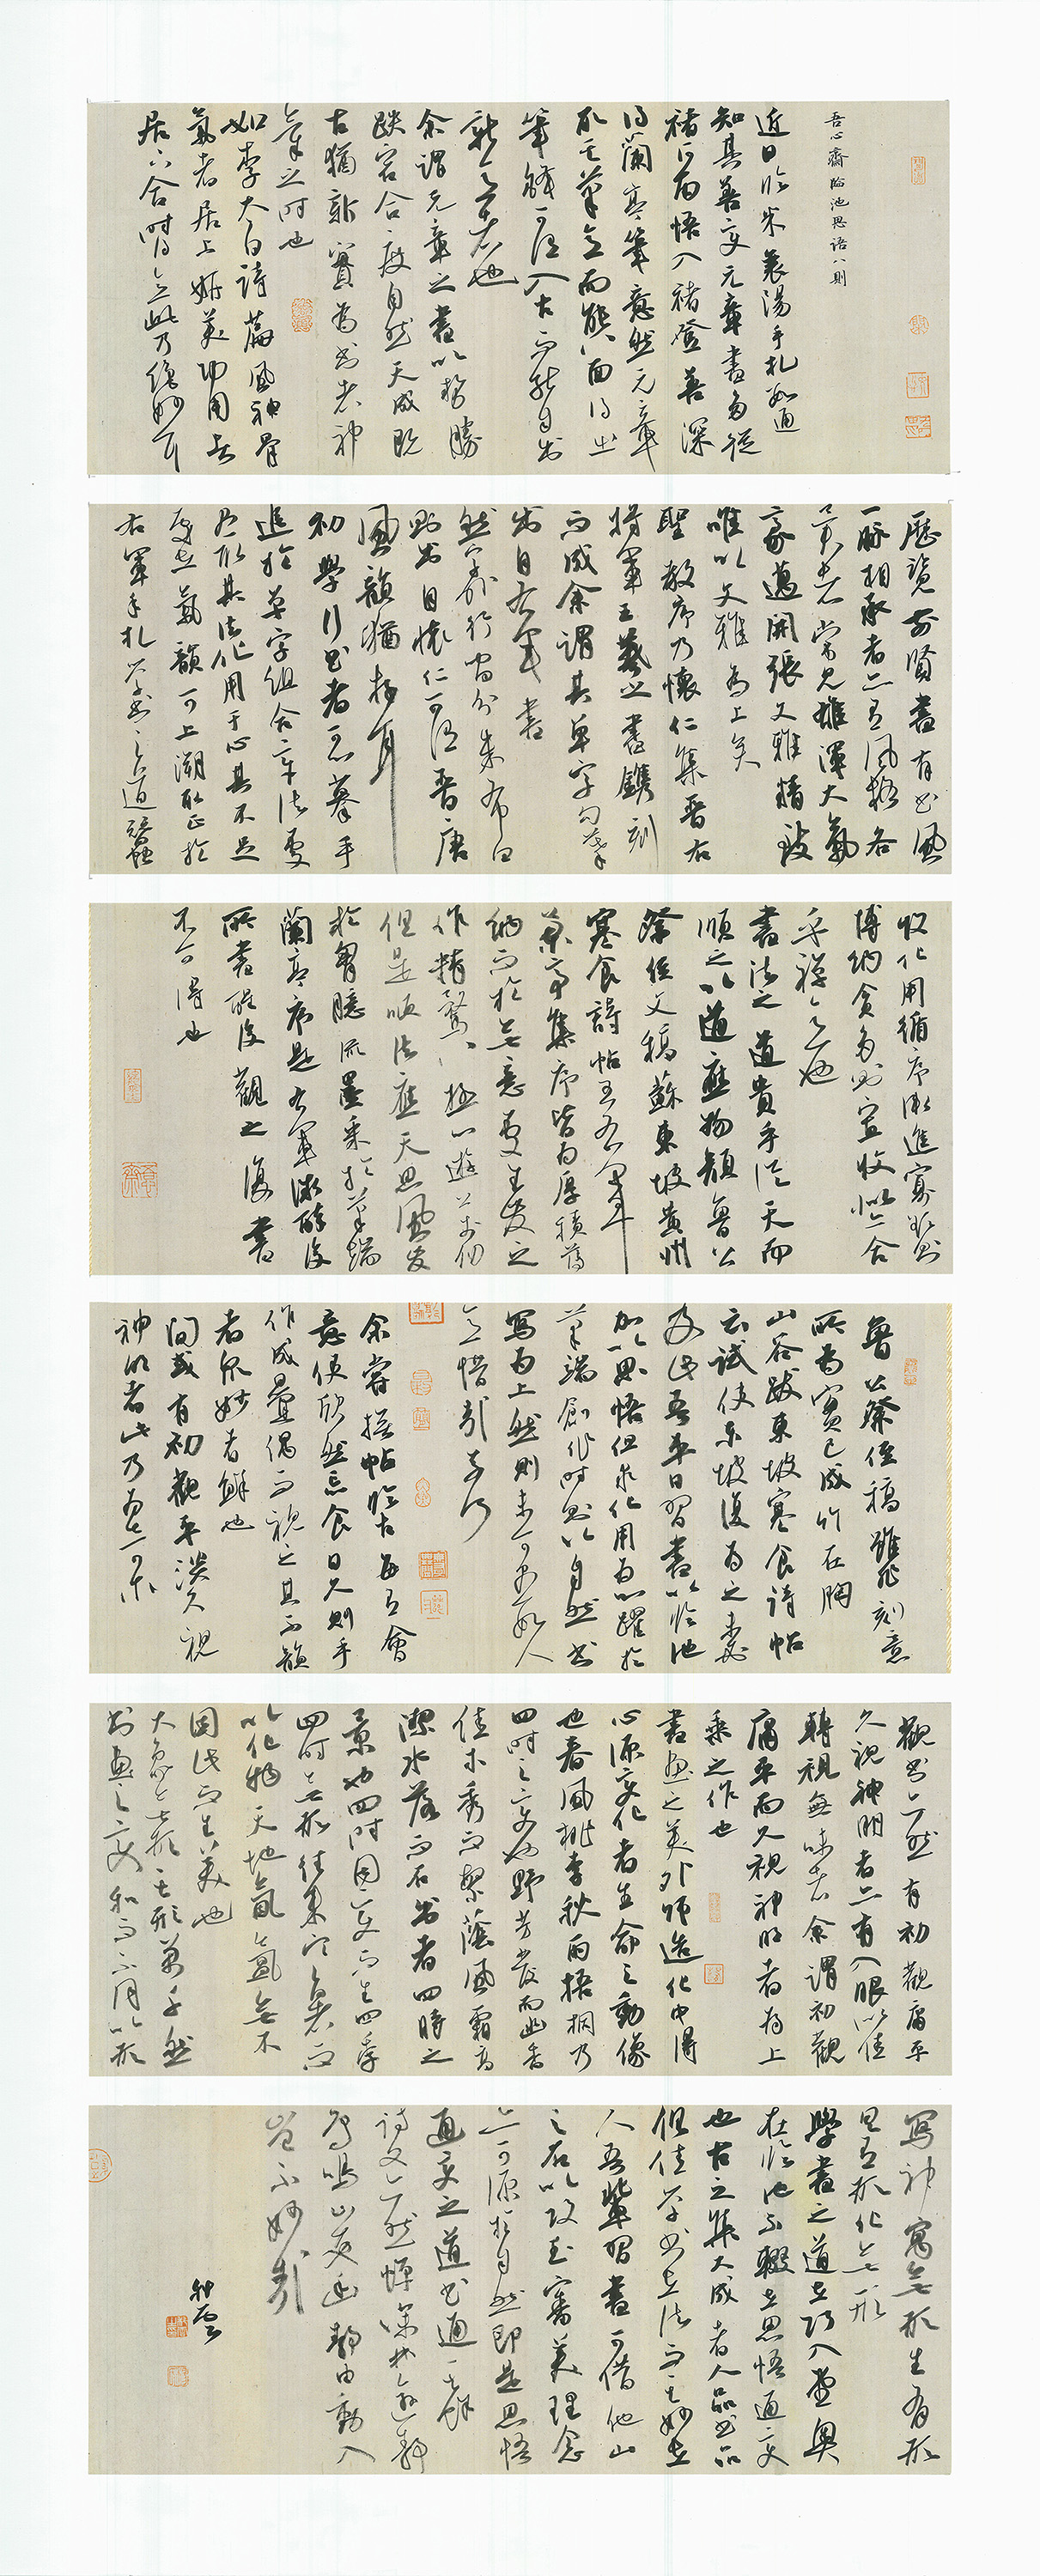 吾心齋臨池思語八則
近日臨米襄陽手札數通
知其善變元章書多從
褚河南悟入褚登善深
得蘭亭筆意然元章
取其筆意而能八面得出
筆鋒可謂入古而能自出
新意者也
余謂元章之書以勢勝
跌宕合度自然天成既
古猶新實為書者神
筆之時也
如李太白詩蕭風神骨
氣者居上妍美功用者
居下舍時意此乃絕妙耳
歷覽前賢書有書風
一脈相承者亦有風格各
異者常見雄渾大氣
豪邁開張文雅精致
唯以文雅為上矣
聖教序乃懷仁集晉右
將軍王羲之書鐫刻
而成余謂其單字勾摹
出自右軍書
然字列行間分朱布白
則出自懷仁可謂晉唐
風韻猶存耳
初學行書者不摹手
追於單字組合章法處
及取其法作用于心其不足
處在氣韻可上溯取正於
右軍手札學書之道
收化用循序漸進寡然
博納貪多則宜收以合
乎禪意也
書法之道貴乎從天而
順之以道應物顏魯公
祭侄文稿蘇東坡黃州
寒食詩帖王右軍
蘭亭集序皆為厚積薄
納而於無意處生發之
作精騖八極心遊萬仞
但是順法應天思風發
於胸臆流墨采於筆端
蘭亭序是右軍微醉後
所書醒後觀之復書
不可得也
魯公祭侄稿雖非刻意
所為實已成竹在胸
山谷跋東坡寒食詩帖
云試使東坡復為之未必
及此吾平日習書以臨池
加以思悟但求化用為心躍於
筆端創作時則以自然書
寫為上然則未可盡如人
意惜哉
余嘗摹帖臨古每有會
意便欣然忘食日久則手
作成疊偶而視之其而韻
者眾妙者鮮也
間或有初觀平淡久視
神明者此乃
觀書亦然有初觀庸平
久視神明者亦有入眼以佳
轉視無味者余謂初觀
庸平而久視神明者為上
乘之作也
書畫之美外師造化中得
心源變化者生命之動像
也春風桃李秋雨梧桐乃
四時之變也野芳發而幽香
佳木秀而繁蔭風霜高
潔水落而石出者四時之
景也四時因變而生四季
四時無形往來之象而
以化物天地氤氳無不
因此而生美也
大象無形形萬千然
書畫之變和而不同以形
寫神寓無形生有形
且有形化無形
學書之道在巧入堂奧
在臨池不輟在思悟通變
也古之集大成者人品書品
俱佳學書在法而其妙在
人吾輩習書可借他山
之石以攻玉審美理念
亦可源於自然即是思悟
通變之道書通其餘
詩文亦然蟬噪林逾靜
鳥鳴山更幽靜由動入
豈不妙哉